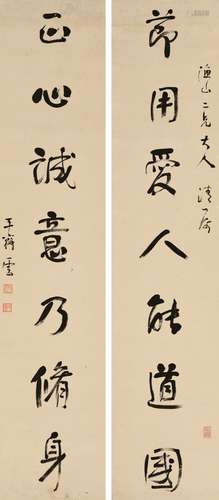 節用愛人能道國
漁山二兄大人 清
正心誠意乃脩身
王 雲